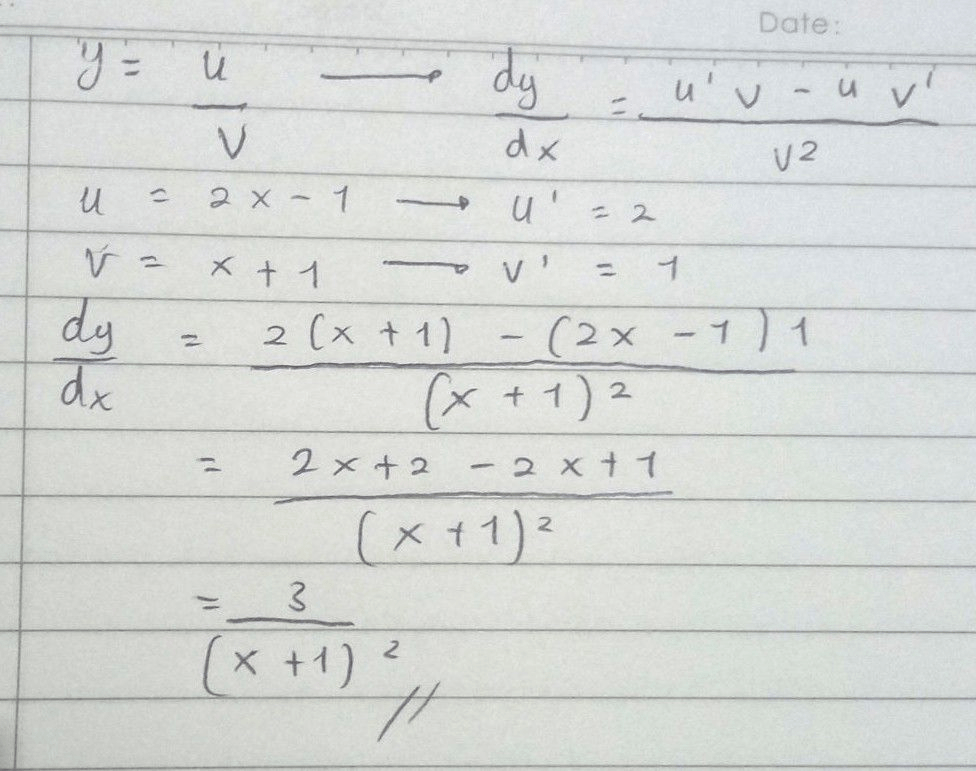 Date:
y = u/v → dy/dx = (u' v - u v')/v²
u = 2x - 1 → u' = 2
v = x + 1 → v' = 1
dy/dx = (2(x + 1) - (2x - 1)1)/(x + 1)²
= (2x + 2 - 2x + 1)/(x + 1)²
= 3/(x + 1)² //